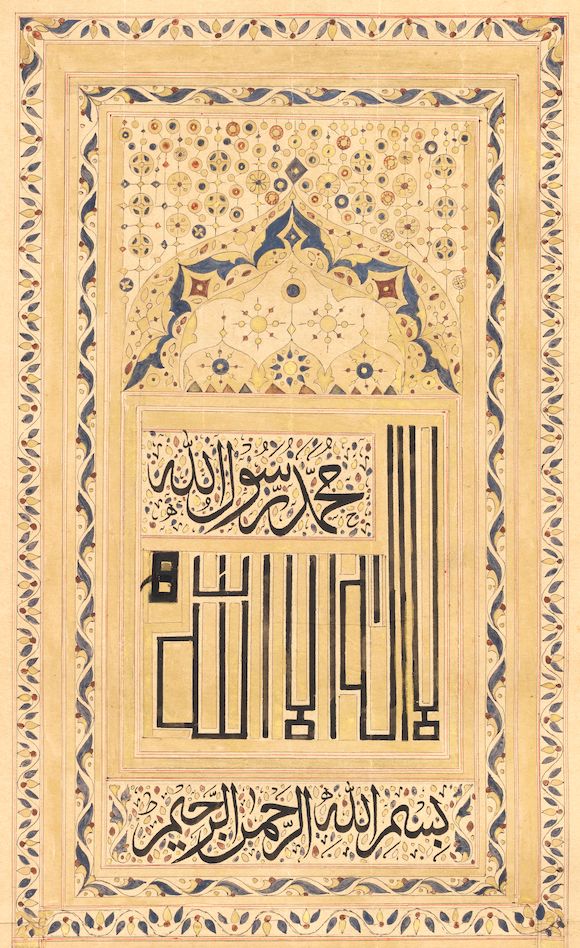 محمد رسول الله
لا اله الا الله
بسم الله الرحمن الرحيم